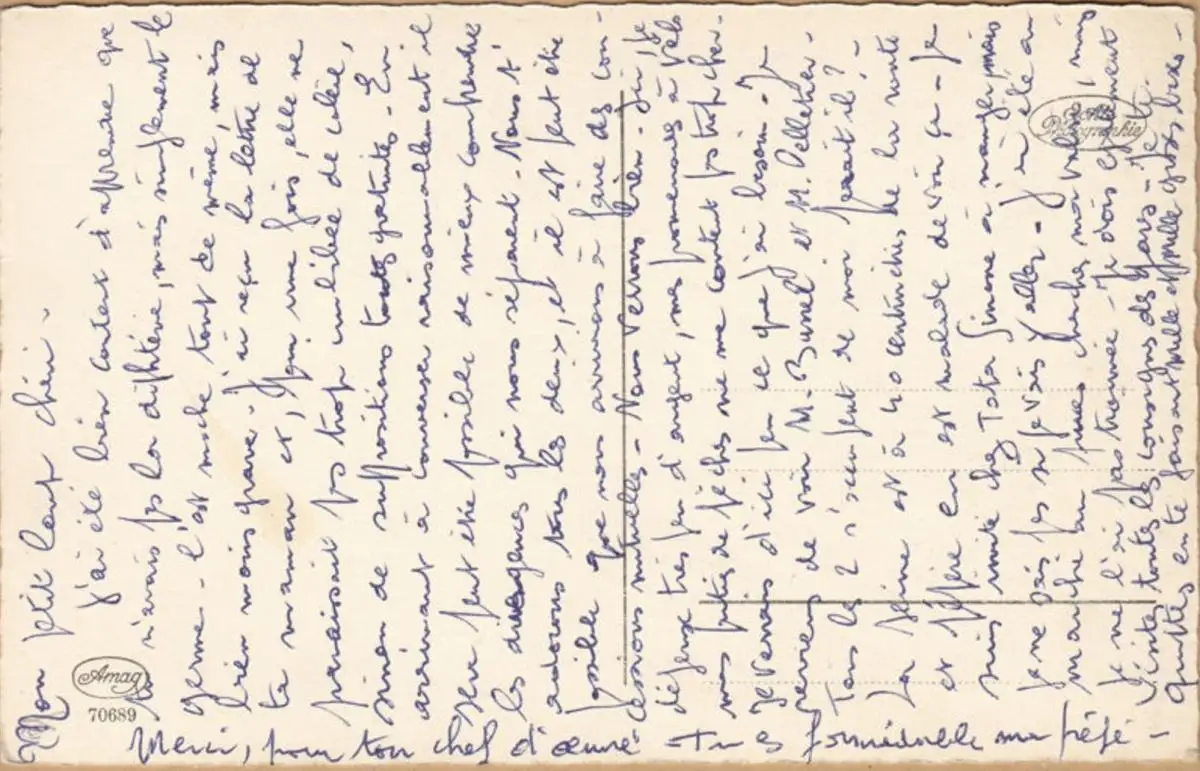 Mon petit loup chéri.
j'ai été bien content d'apprendre que
tu n'avais pas la diphtérie, mais simplement le
germe - C'est moche tout de même, mais
bien moins grave. J'ai reçu la lettre de
ta maman et, pour une fois, elle ne
paraissait pas trop imbibée de colère,
sinon de suppositions toutes gratuites - En
arrivant à converser raisonnablement il
sera peut être possible de mieux comprendre
les divergences qui nous séparent - Nous t'
adorons tous les deux, et il est peut être
possible que nous arrivions à faire des con-
cessions mutuelles - Nous verrons bien - Ici, je
dépense très peu d'argent, mes promenades à vélo
mes parties de pêches ne me coûtent pas trop cher.
Je verrais d'ici peu ce que j'ai besoin - Je
reviens de voir M. Bunel et M. Pelletier -
Tous les 2 s'ennuient de moi parait il? -
La Seine est à 40 centimètres de la route
et pépère en est malade de voir ça - Je
suis invité chez Tata Simone à manger, mais
je ne sais pas si je vais y aller - J'ai été au
marché aux puces chercher nos valises, mais
je ne l'ai pas trouvée - Je dois également
visiter toutes les consignes des gares - Je te
quittes en te faisant mille et mille gros bises -
Merci, pour ton chef d'œuvre - Tu es formidable ma féfé -
Amag
70689
Photographie